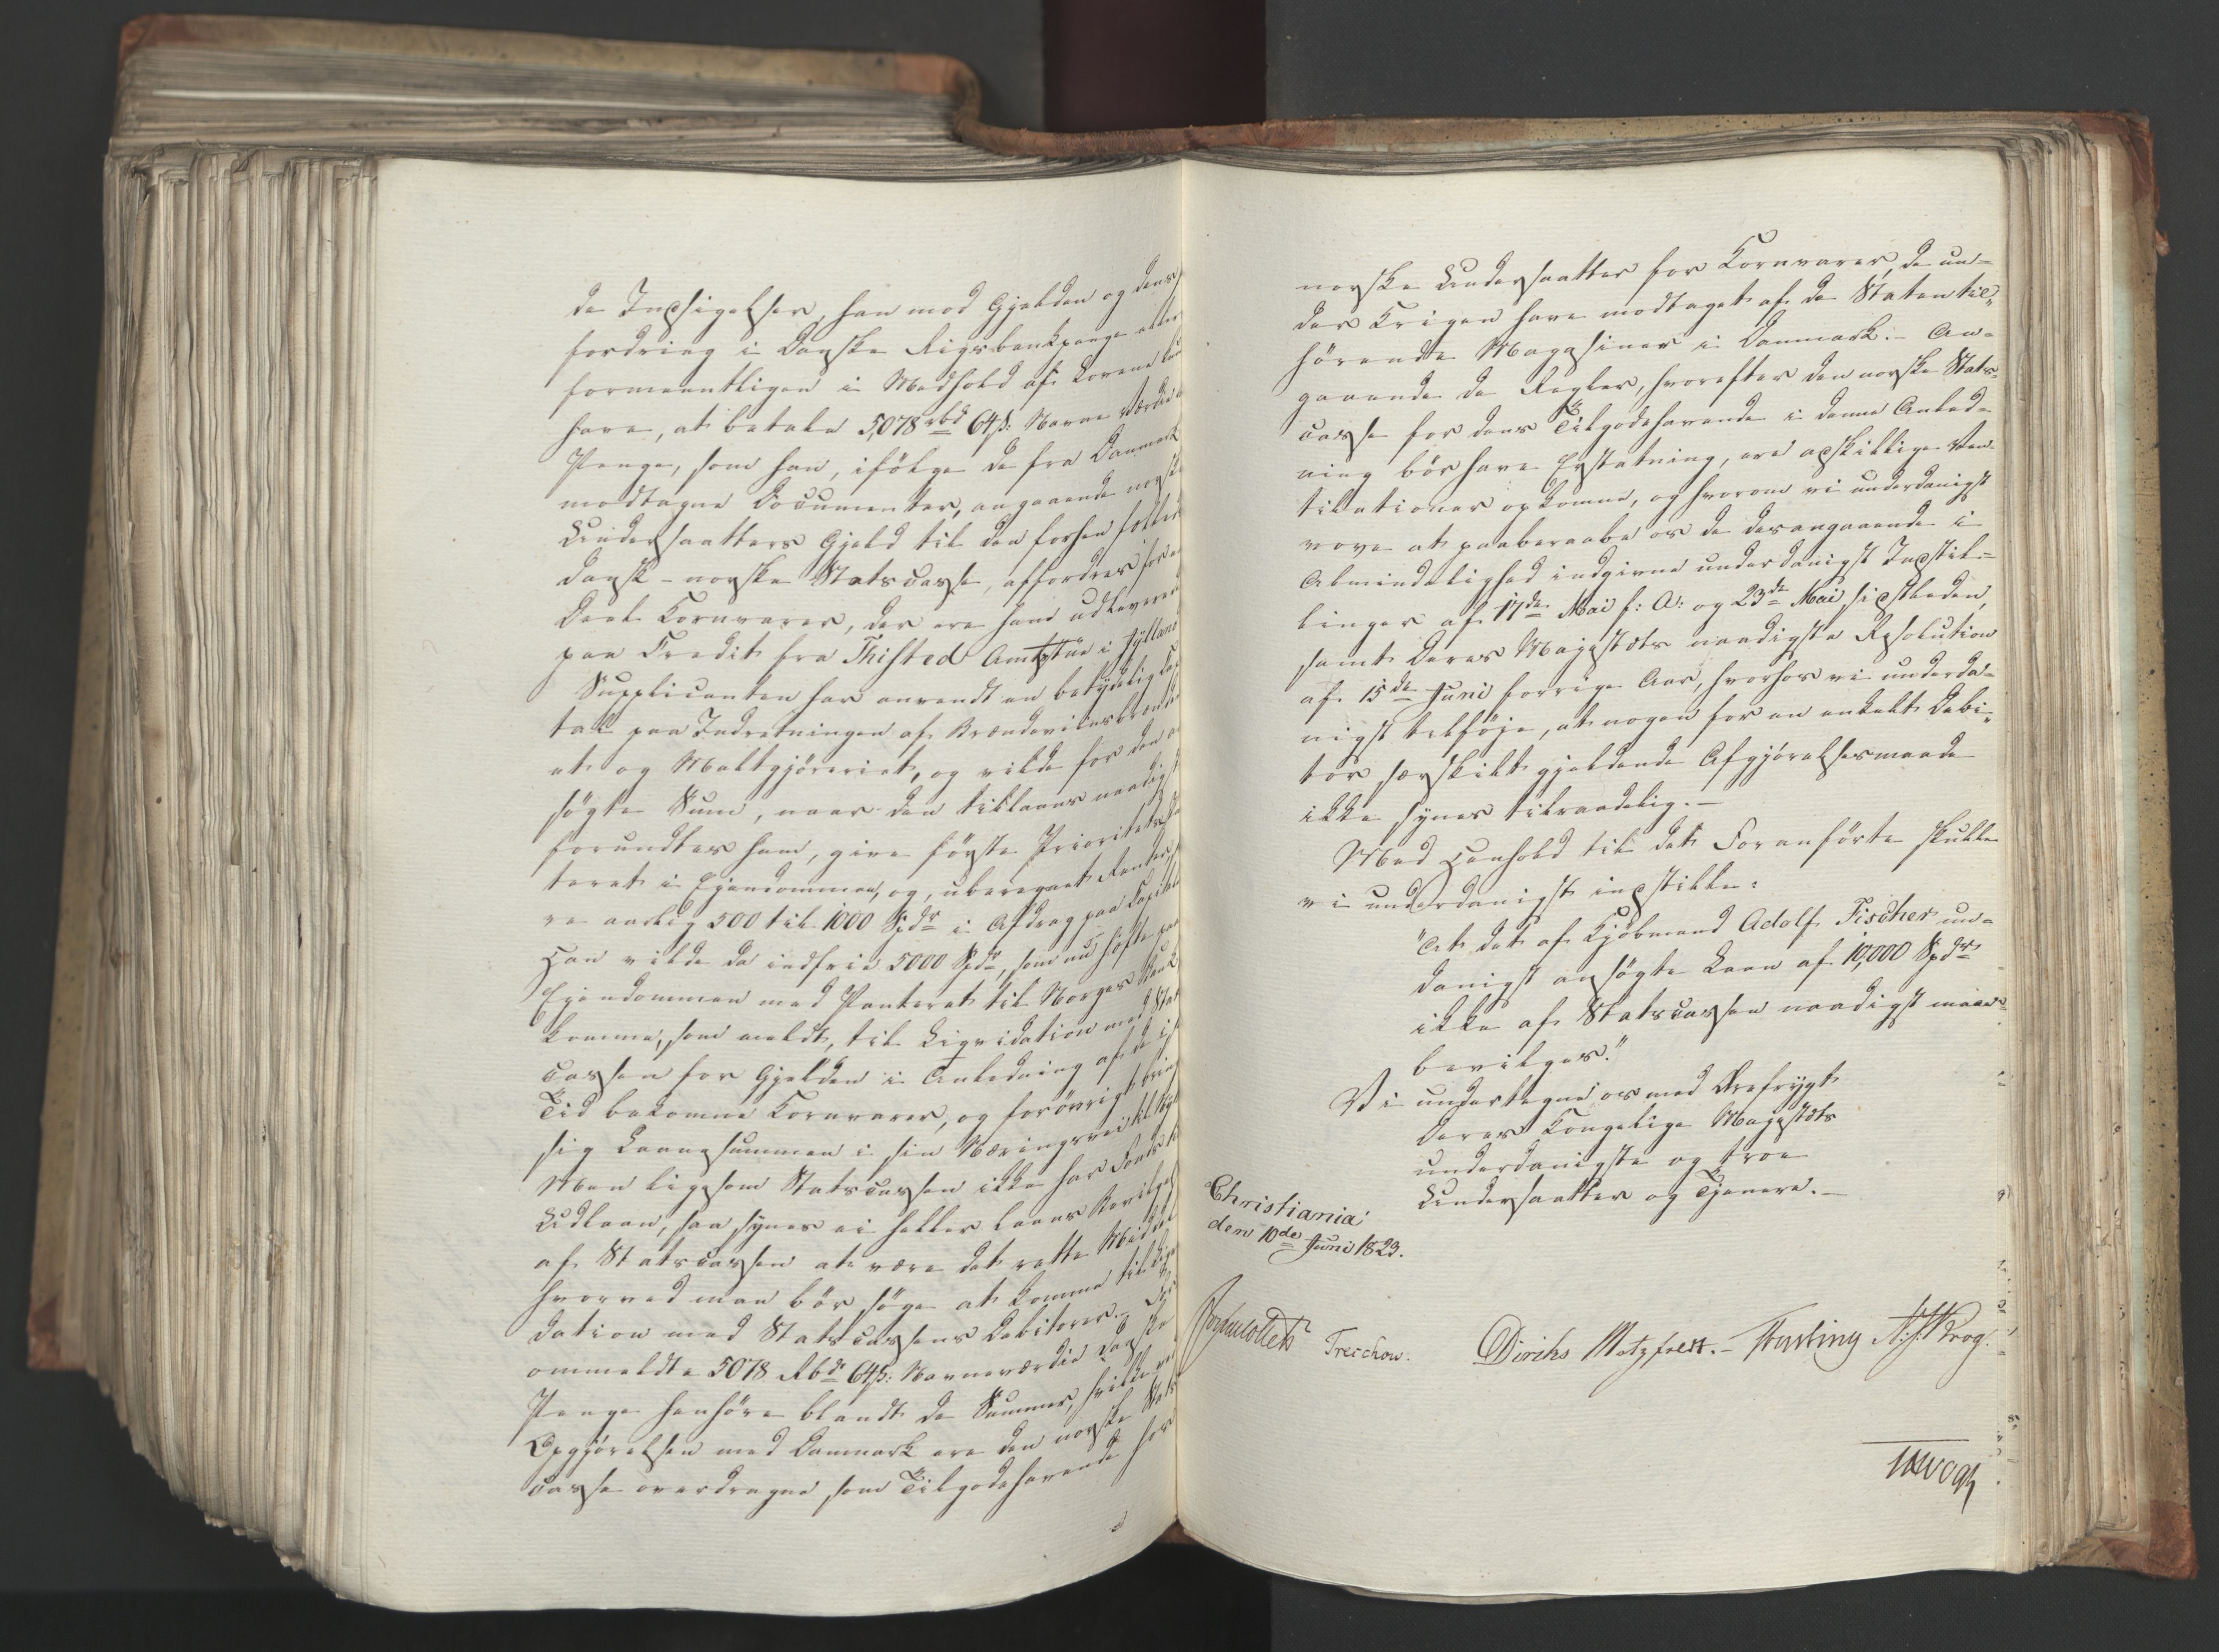 de Indsigelser, han mod Gjelden og dens
fordring i Danske Rigsbankpenge eller
formeentligen i Medhold af Lovene kun
have, at betale 5,078 rbd 64 s: Navne Værdie
Penge, som han, ifölge de fra Danmark
modtagne Documenter, angaaende norske
Undersaatters Gjeld til den forhen fælles
dansk-norske Statscasse, affordres for en
Deel Kornvarer, der ere ham udleverede
paa Credit fra Thisted Amtstue i Jylland
Supplicanten har anvendt en betydelig Capi
tal paa Indretningen af Brændeviinsbrænderi
et og Maltgjöreriet, og vilde for den an
søgte Sum, naar den tillaans naadigst
forundtes ham, give første Prioritets
teret i Ejendommen, og, uberegnet Renter,
re aarlig 500 til 1000 Spdr i Afdrag paa Capital
Han vilde da indfrie 5000 Spdr, som nu hæfte paa
Ejendommen med Panteret til Norges Bank
komme, som meldt, til Liqvidation med Stats
cassen for Gjelden i Anledning af de i sin
Tid bekomne Kornvarer, og forövrigt bring
sig Laanesummen i sin Næringsvei til Nytte
Men ligesom Statscassen ikke har Fonds til
Udlaan, saa synes ei heller Laans Bevilgelse
af Statscassen at være det rette Middel
hvorved man bör söge at komme til Liqvi
dation med Statscassens Debitorer. De
ommeldte 5078 Rbd 64 s: Navneværdie Danske
Penge henhöre blandt de Summer, hvilke ved
Opgjörelsen med Danmark ere den norske Stats
casse overdragne, som Tilgodehavende hos
norske Undersaatter for Kornvarer, de un-
der Krigen have modtaget af de Staten til-
hörende Magasiner i Danmark. - An-
gaaende de Regler, hvorefter den norske Stats-
casse for dens Tilgodehavende i denne Anled-
ning bör have Erstatning, ere adskillige Ven-
tilationer opkomne, og hvorom vi underdanigst
vove at paaberaabe os de desangaaende i
Almindelighed indgivne underdanigst Indstil-
linger af 17de Mai f: A: og 23de Mai sidstleden,
samt Deres Majestæts naadigste Resolution
af 15de Juni forrige Aar, hvorhos vi underda-
nigst tilföje, at nogen for en enkelt Debi-
tor særskilt gjeldende Afgjörelsesmaade
ikke synes tilraadelig. -
Med Henhold til det Foranförte skulle
vi underdanigst indstille:
"At det af Kjöbmand Adolf Fischer un-
danigst ansögte Laan af 10,000 Spdr
ikke af Statscassen naadigst maae
bevilges."
Vi undertegne os med Ærefrygt
Deres Kongelige Majestæts
underdanigste og troe
Undersaatter og Tjenere. -
Christiania
den 10de Juni 1823.
Treschow. Diriks Motzfeldt. - Fasting Krog.
Vogt